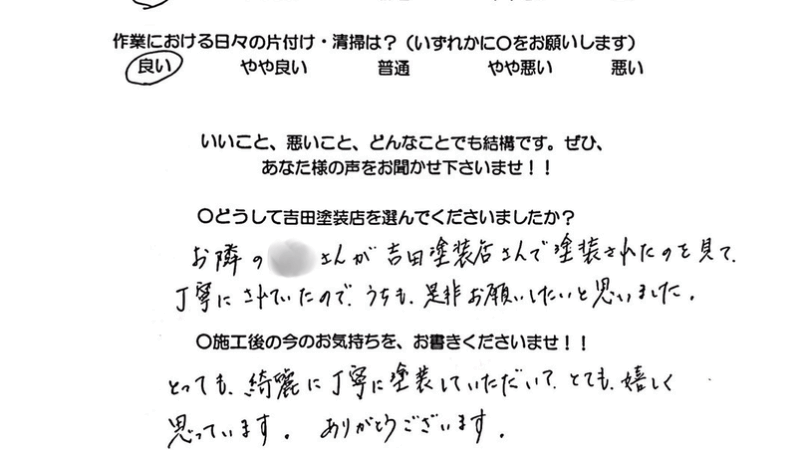 作業における日々の片付け・清掃は？（いずれかに〇をお願いします）
良い　やや良い　普通　やや悪い　悪い
いいこと、悪いこと、どんなことでも結構です。ぜひ、
あなた様の声をお聞かせ下さいませ！！
〇どうして吉田塗装店を選んでくださいましたか？
お隣の　さんが吉田塗装店さんで塗装されたのを見て、
丁寧にされていたので、うちも、是非お願いしたいと思いました。
〇施工後の今のお気持ちを、お書きくださいませ！！
とっても、綺麗に丁寧に塗装していただいて、とても、嬉しく
思っています。ありがとうございます。